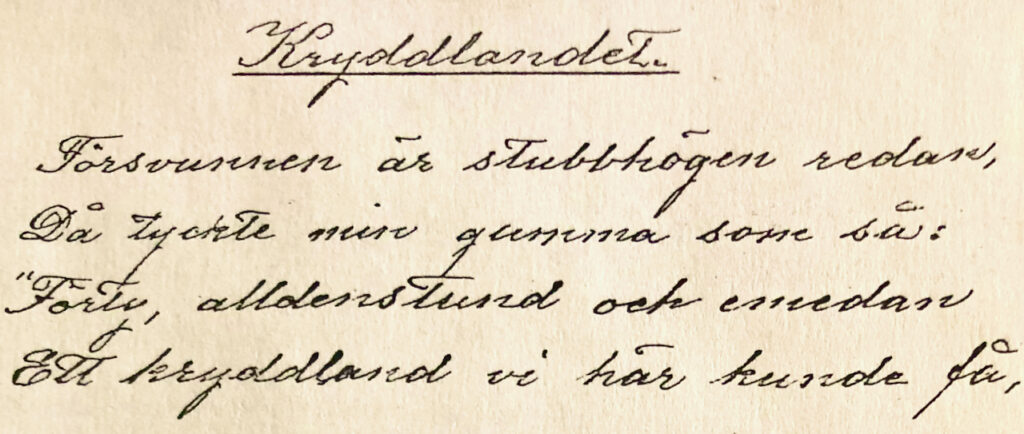 Kryddlandet.
Försvunnen är stubbhögen redan,
Då tyckte min gumma som så:
"Förty, alldenstund och emedan
Ett kryddland vi här kunde få,